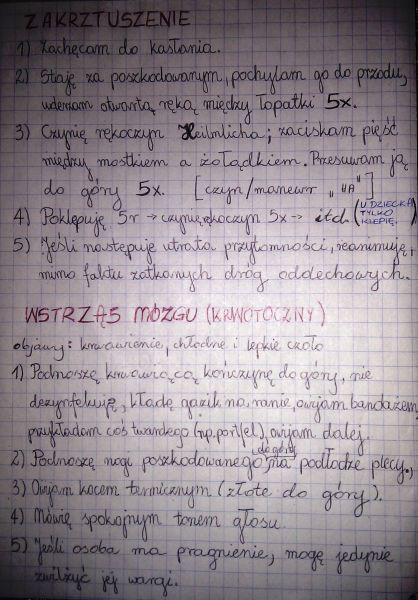 ZAKRZTUSZENIE
1) Zachęcam do kasłania.
2) Staję za poszkodowanym, pochylam go do przodu,
uderzam otwartą ręką między łopatki 5x.
3) Czynię rękoczyn Heilmlicha; zaciskam pięść
między mostkiem a żołądkiem. Przesuwam ją
do góry 5x. [czyn/manewr „HA"]
4) Poklepuję 5r → czynię rękoczyn 5x → itd. (U DZIECKA TYLKO KLEPIĘ.)
5) Jeśli następuje utrata przytomności, reanimuję,
mimo faktu zatkanych dróg oddechowych.
WSTRZĄS MÓZGU (KRWOTOCZNY)
objawy: krwawienie, chłodne i lepkie czoło
1) Podnoszę krwawiącą kończynę do góry, nie
dezynfekuję, kładę gazik na ranie, owijam bandażem,
przykładam coś twardego (np. portfel), owijam dalej.
2) Podnoszę nogi poszkodowanego do góry, na podłodze plecy.
3) Owijam kocem termicznym (złote do góry).
4) Mówię spokojnym tonem głosu.
5) Jeśli osoba ma pragnienie, mogę jedynie
zwilżyć jej wargi.